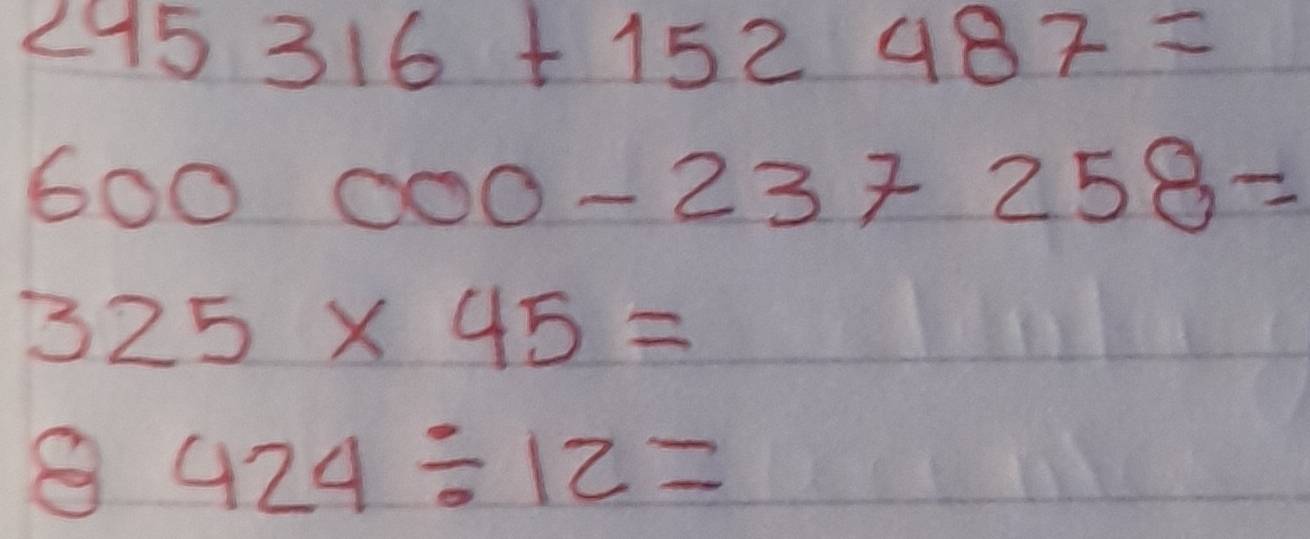 245 316 + 152 487 =
600 000 - 237 258 =
325 × 45 =
8 424 ÷ 12 =